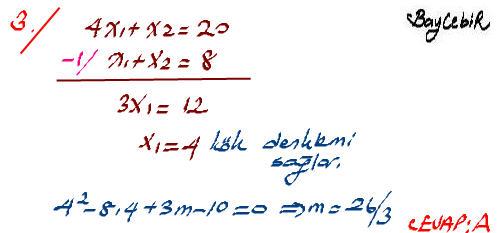 3./
4x₁+x₂=20
BayCebir
-1/ x₁+x₂=8
3x₁=12
x₁=4 kök denklemi
sağlar.
4²-8.4+3m-10=0 ⇒ m=26/3
CEVAP:A